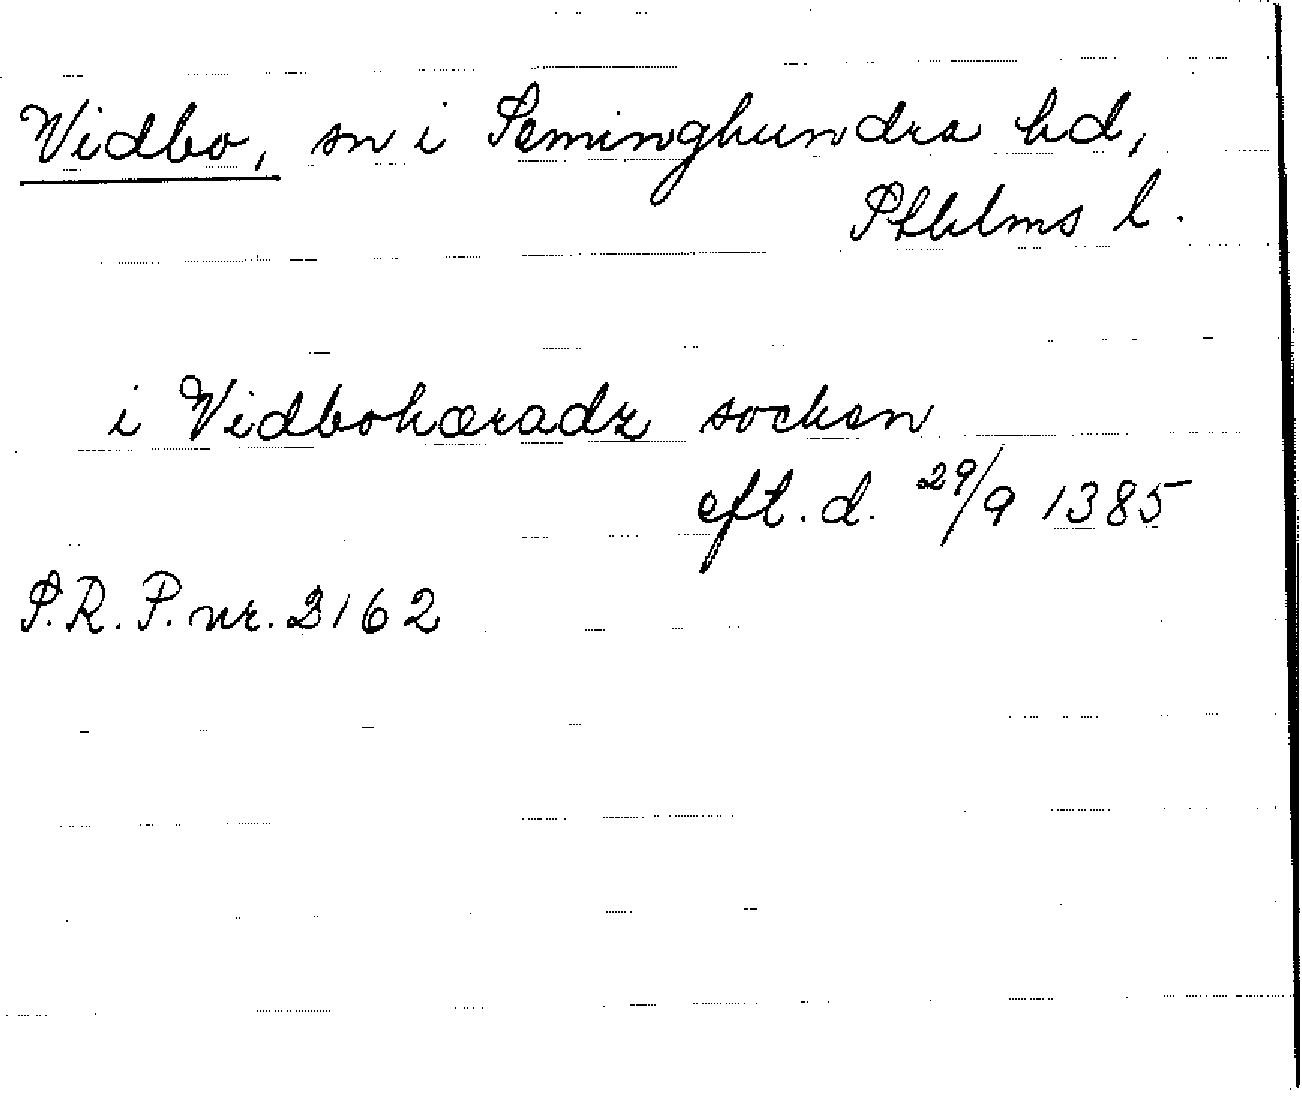 Vidbo, sn i Seminghundra hd,
Sthlms l.
i Vidbohæradz socken
eft. d. 29/9 1385
S.R.P. nr. 2162